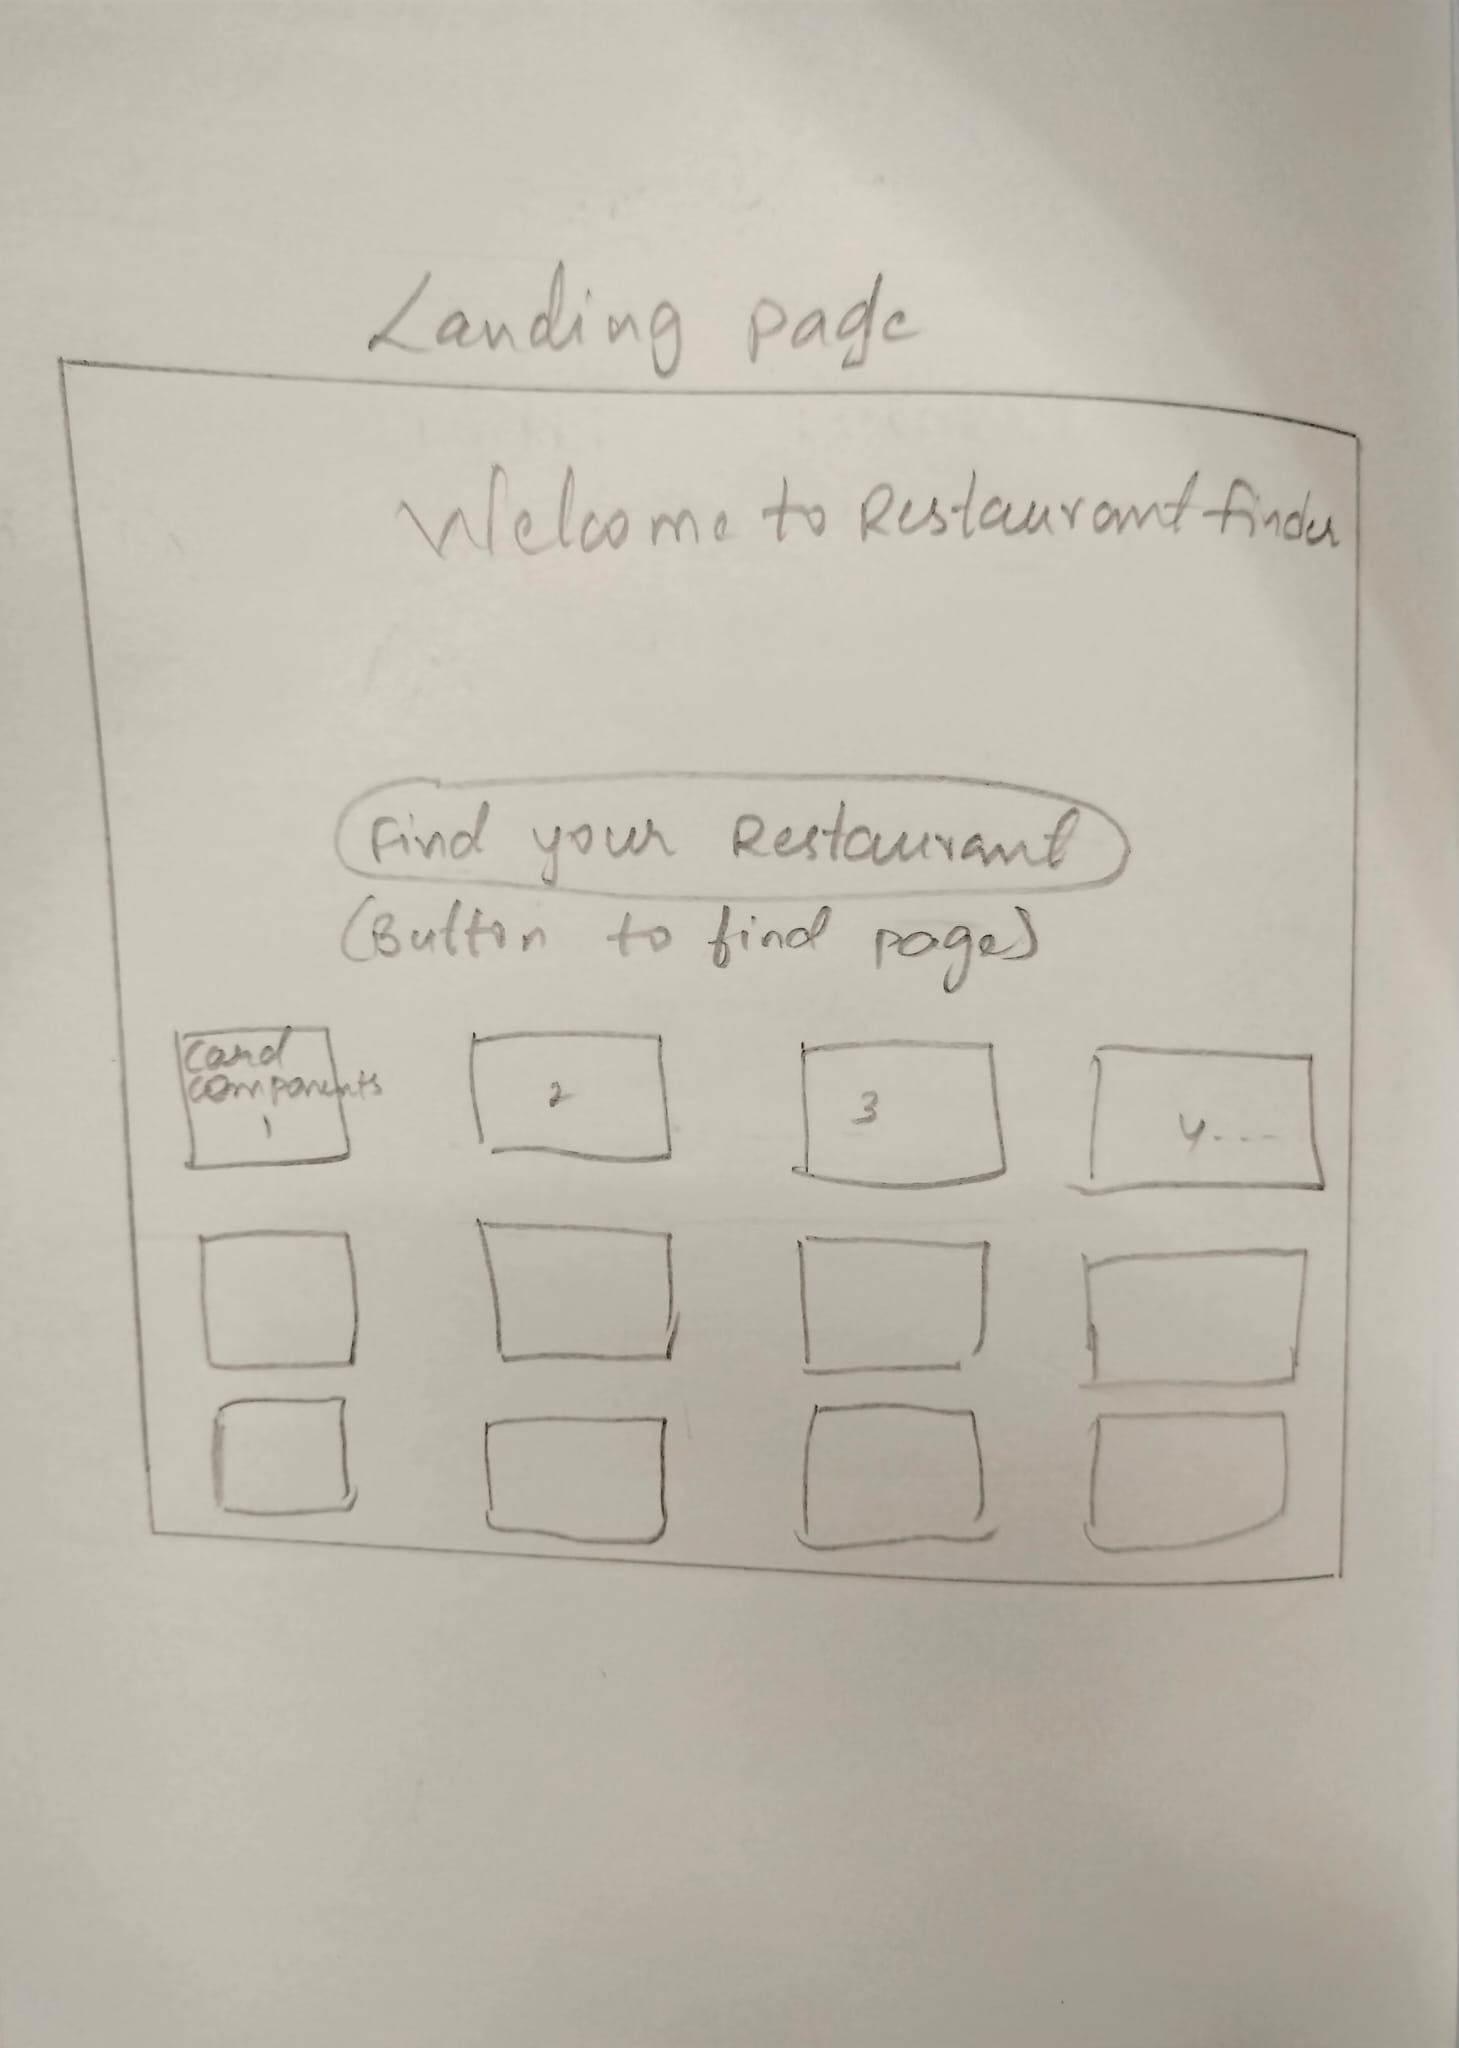 Landing page
Welcome to Restaurant finder
Find your Restaurant
(Button to find page)
Card
components
1
2
3
4....